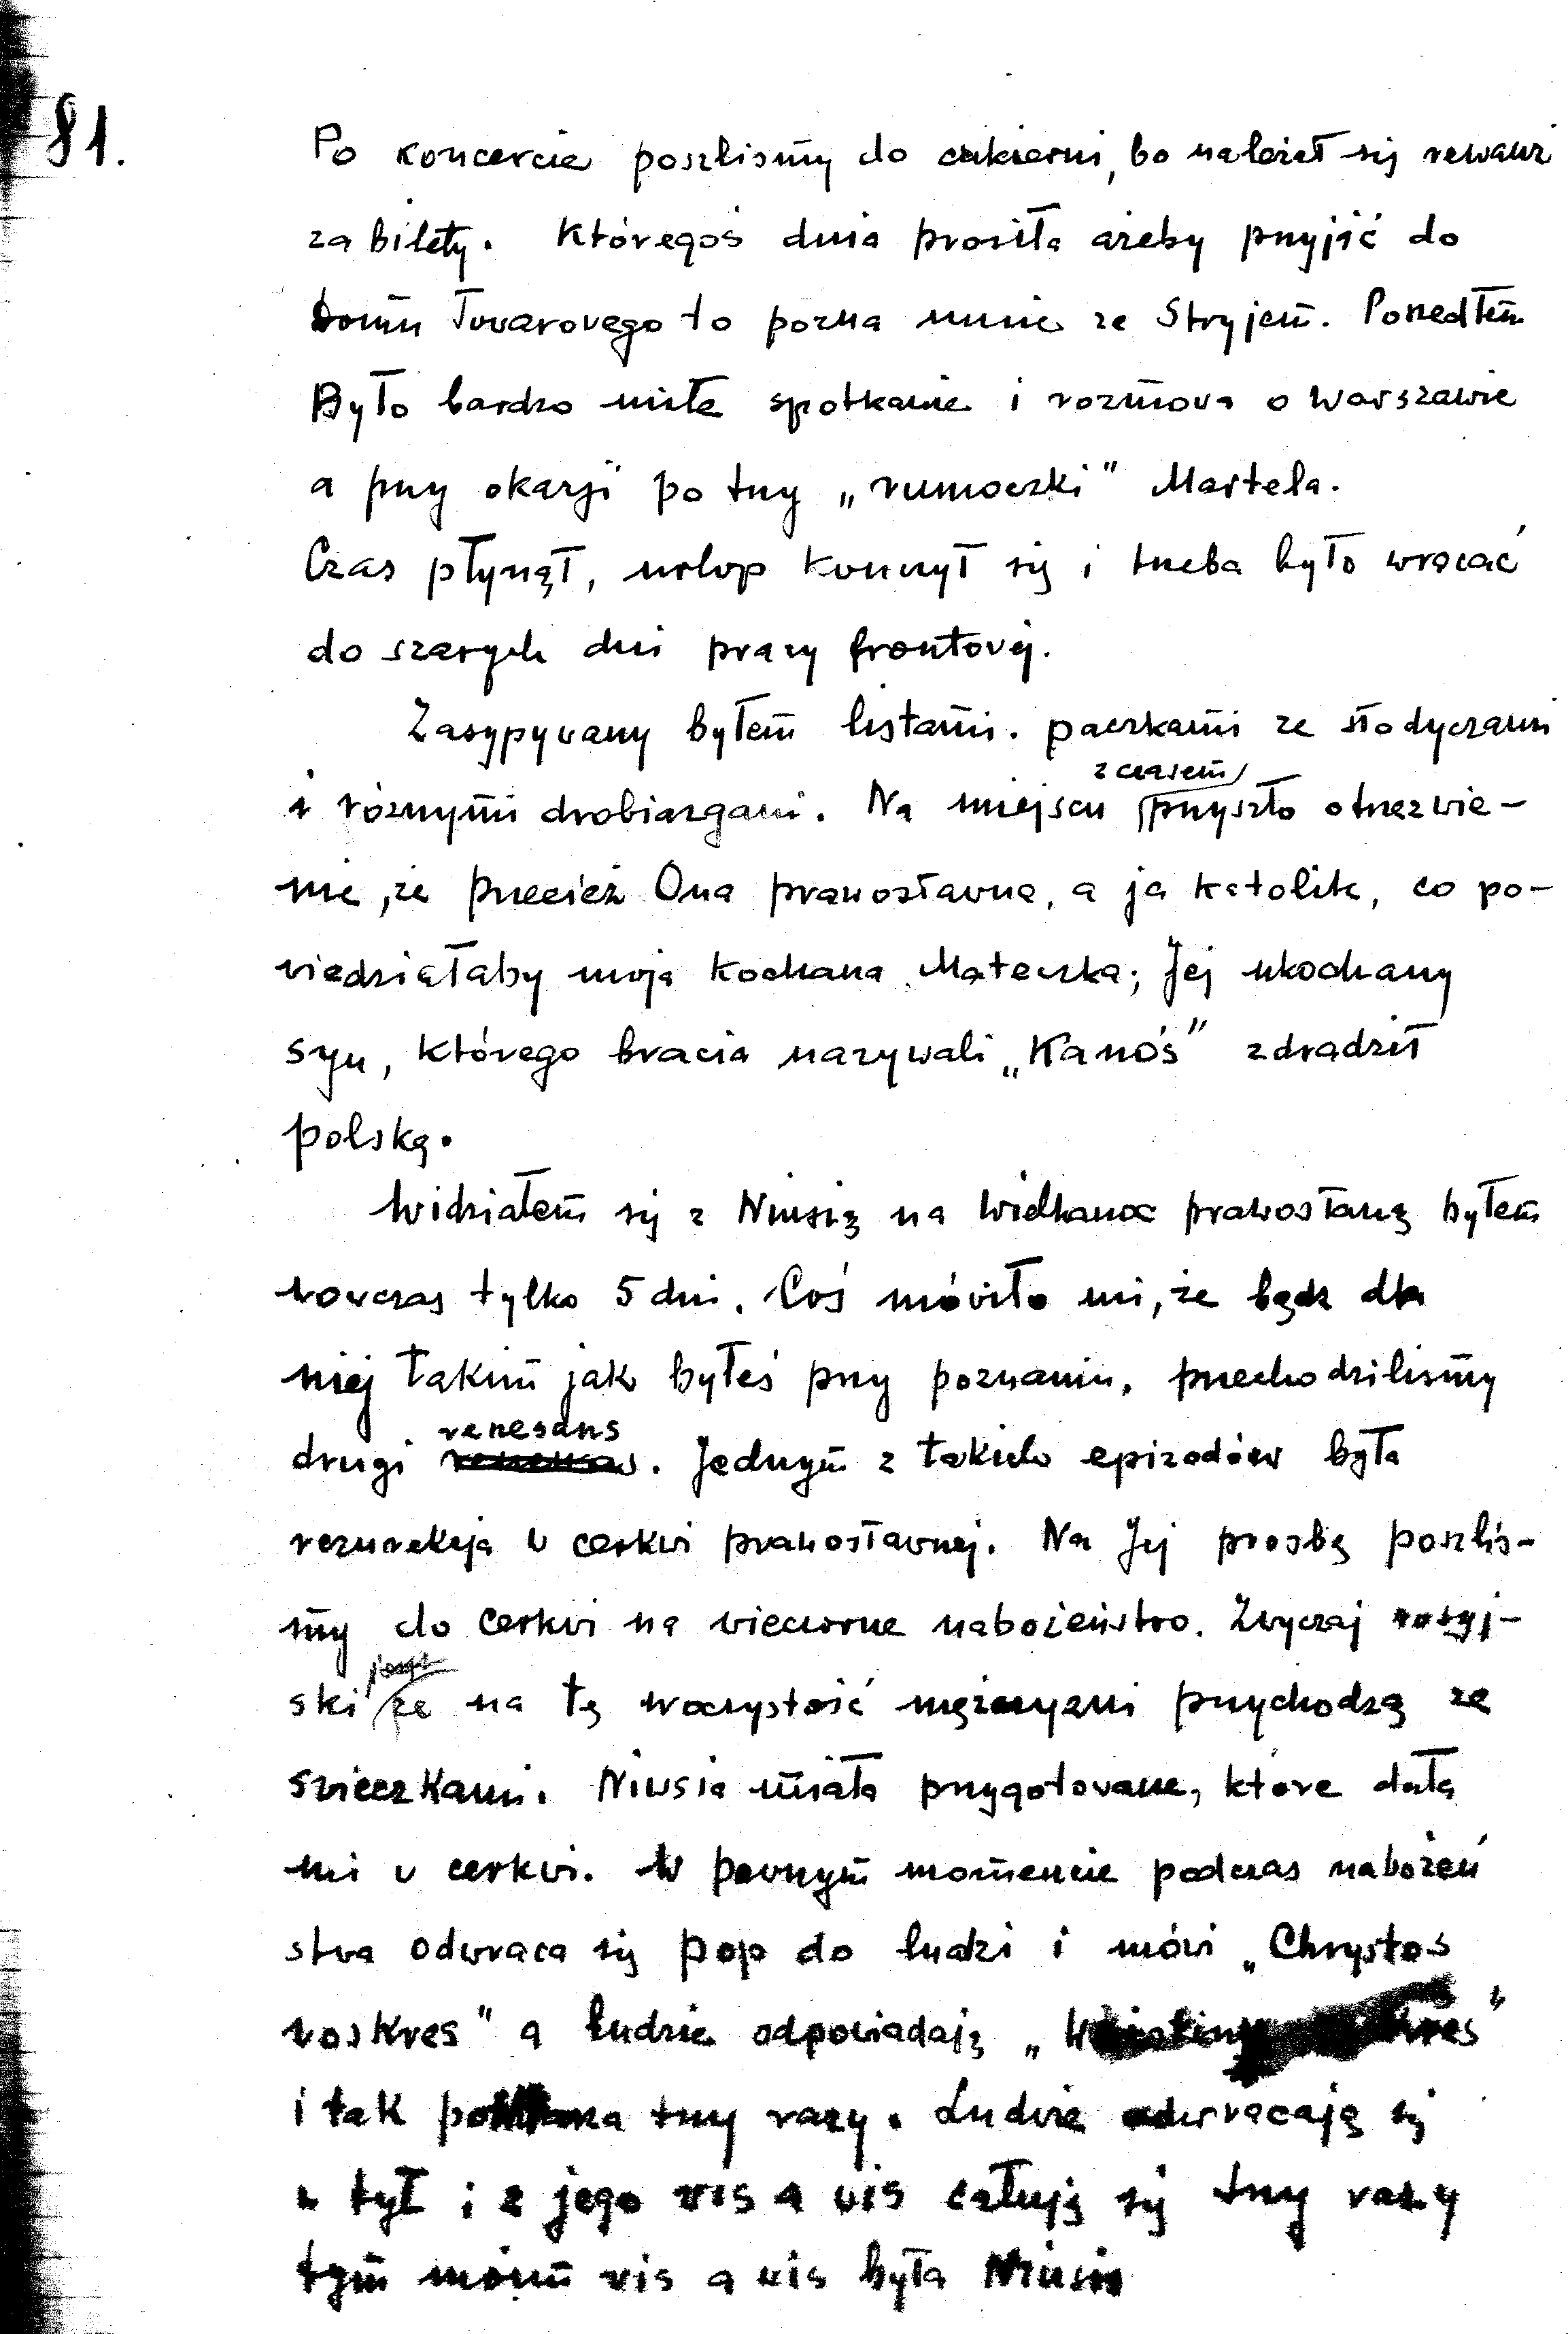 81.
Po koncercie poszlismy do cukierni, bo należał się rewanż
za bilety. Któregoś dnia prosiła ażeby przyjść do
Domu Towarowego to pozna mnie ze Stryjem. Poszedłem
Było bardzo miłe spotkanie i rozmowa o Warszawie
a przy okazji po trzy „rumoczki" Martela.
Czas płynął, urlop kończył się i trzeba było wracać
do szarych dni pracy frontowej.
Zasypywany byłem listami. paczkami ze słodyczami
i różnymi drobiazgami. Na miejscu z czasem przyszło otrzeźwie-
nie, że przecież Ona prawosławna, a ja katolik, co po-
wiedziałaby moja kochana Mateczka; Jej ukochany
syn, którego bracia nazywali „Kanoś" zdradził
polskę.
Widziałem się z Niusią na Wielkanoc prawosławną byłem
wowczas tylko 5 dni. Coś mówiło mi, że bądź dla
niej takim jak byłeś przy poznaniu, przechodzilismy
drugi renesans. Jednym z takich epizodów była
rezurekcja w cerkwi prawosławnej. Na Jej prosbę poszliś-
my do cerkwi na wieczorne nabożeństwo. Zwyczaj rosyj-
ski że na tę uroczystość mężczyzni przychodzą ze
swieczkami. Niusia miała przygotowane, które dała
mi w cerkwi. W pewnym momencie podczas nabożeń
stwa odwraca się pop do ludzi i mówi „Chrystos
woskres" a ludzie odpowiadają
i tak trzy razy. Ludzie odwracają się
w tył i z jego vis a vis całują się trzy razy
tym moim vis a vis była Niusia